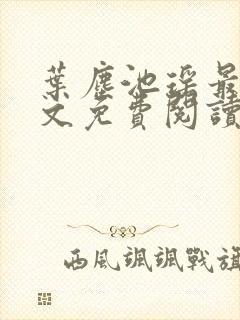 葉塵池瑤最
文免費閱讀
西風颯颯戰旗